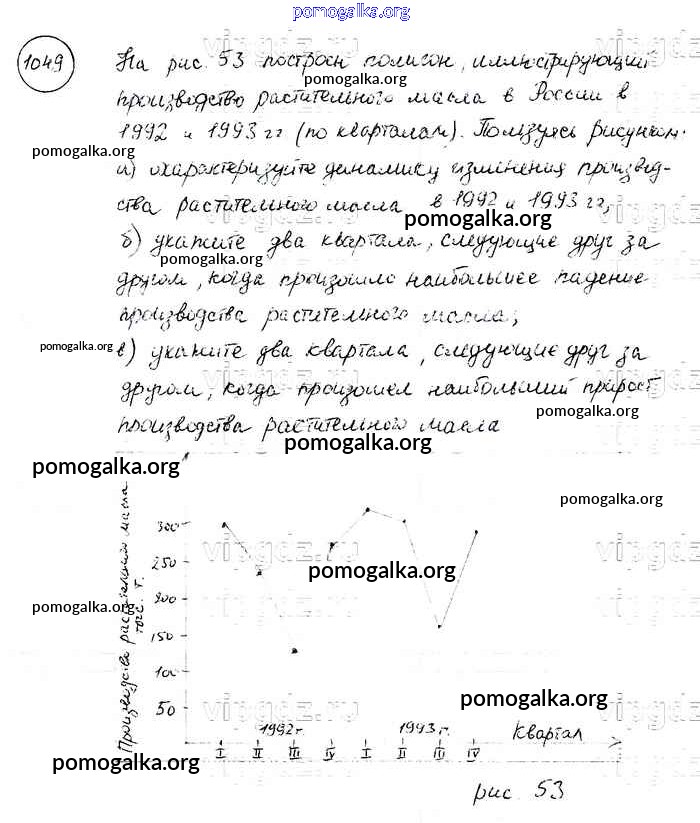 pomogalka.org
1049
На рис. 53 построен полигон, иллюстрирующий
pomogalka.org
производство растительного масла в России в
1992 и 1993 гг (по кварталам). Пользуясь рисунком:
pomogalka.org
а) охарактеризуйте динамику изменения производ-
ства растительного масла в 1992 и 1993 гг;
pomogalka.org
б) укажите два квартала, следующие друг за
pomogalka.org
другом, когда произошло наибольшее падение
производства растительного масла;
pomogalka.org
в) укажите два квартала, следующие друг за
другом, когда произошел наибольший прирост
pomogalka.org
производства растительного масла
pomogalka.org
pomogalka.org
pomogalka.org
Производство растительного масла
тыс. т.
300
250
pomogalka.org
200
pomogalka.org
150
100
pomogalka.org
50
1992г. 1993г. Квартал
I II III IV I II III IV
pomogalka.org
рис. 53